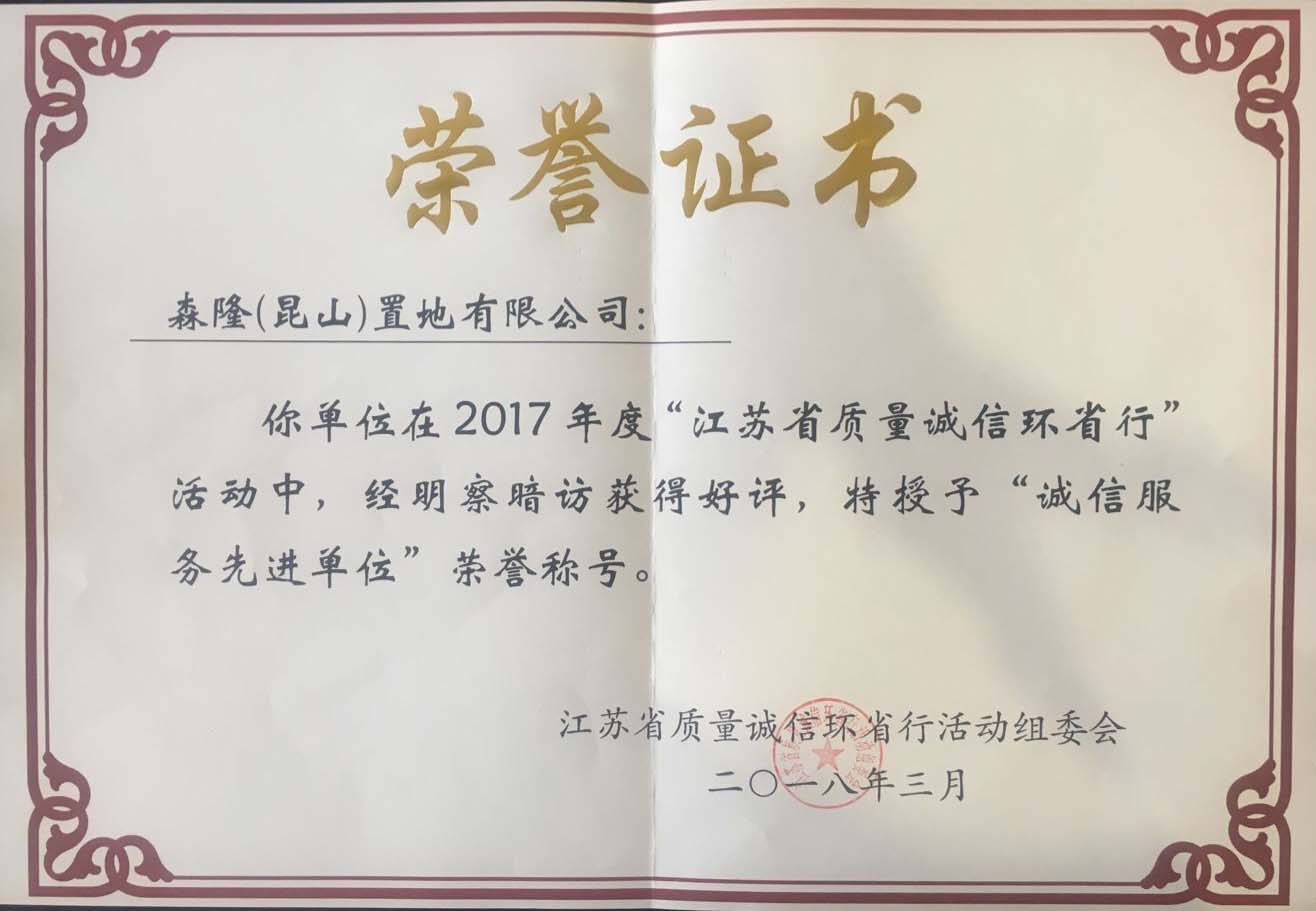 荣誉证书
森隆(昆山)置地有限公司:
你单位在2017年度“江苏省质量诚信环省行”
活动中,经明察暗访获得好评,特授予“诚信服
务先进单位”荣誉称号。
江苏省质量诚信环省行活动组委会
二〇一八年三月